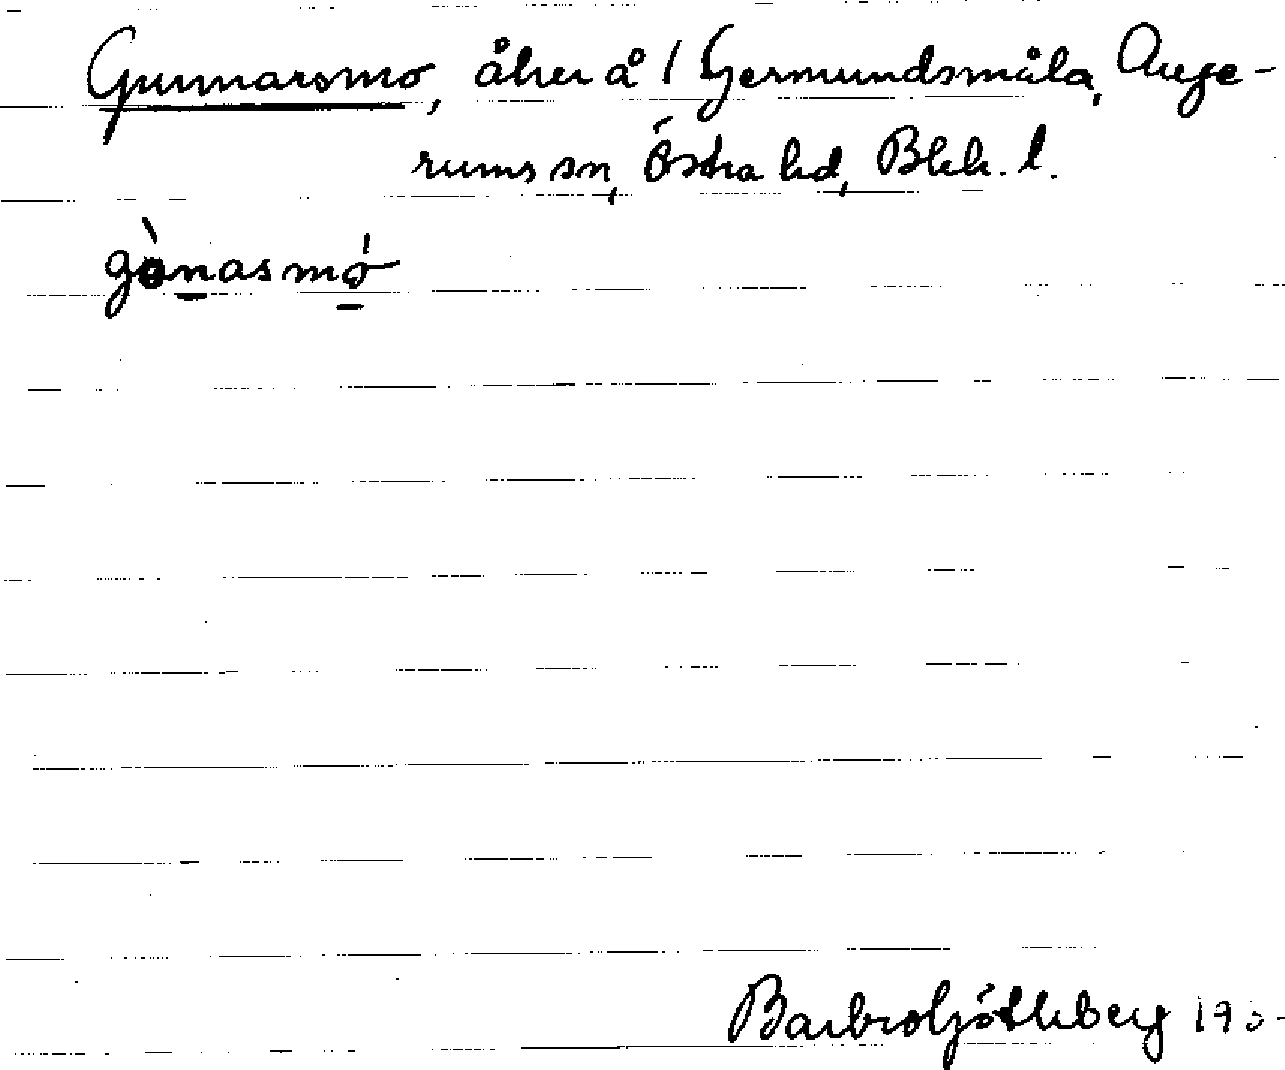 Gunnarsmo, åker å 1 Germundsmåla, Auge-
rums sn, Östra hd, Blek. l.
gònasmó
Barbro Götheberg